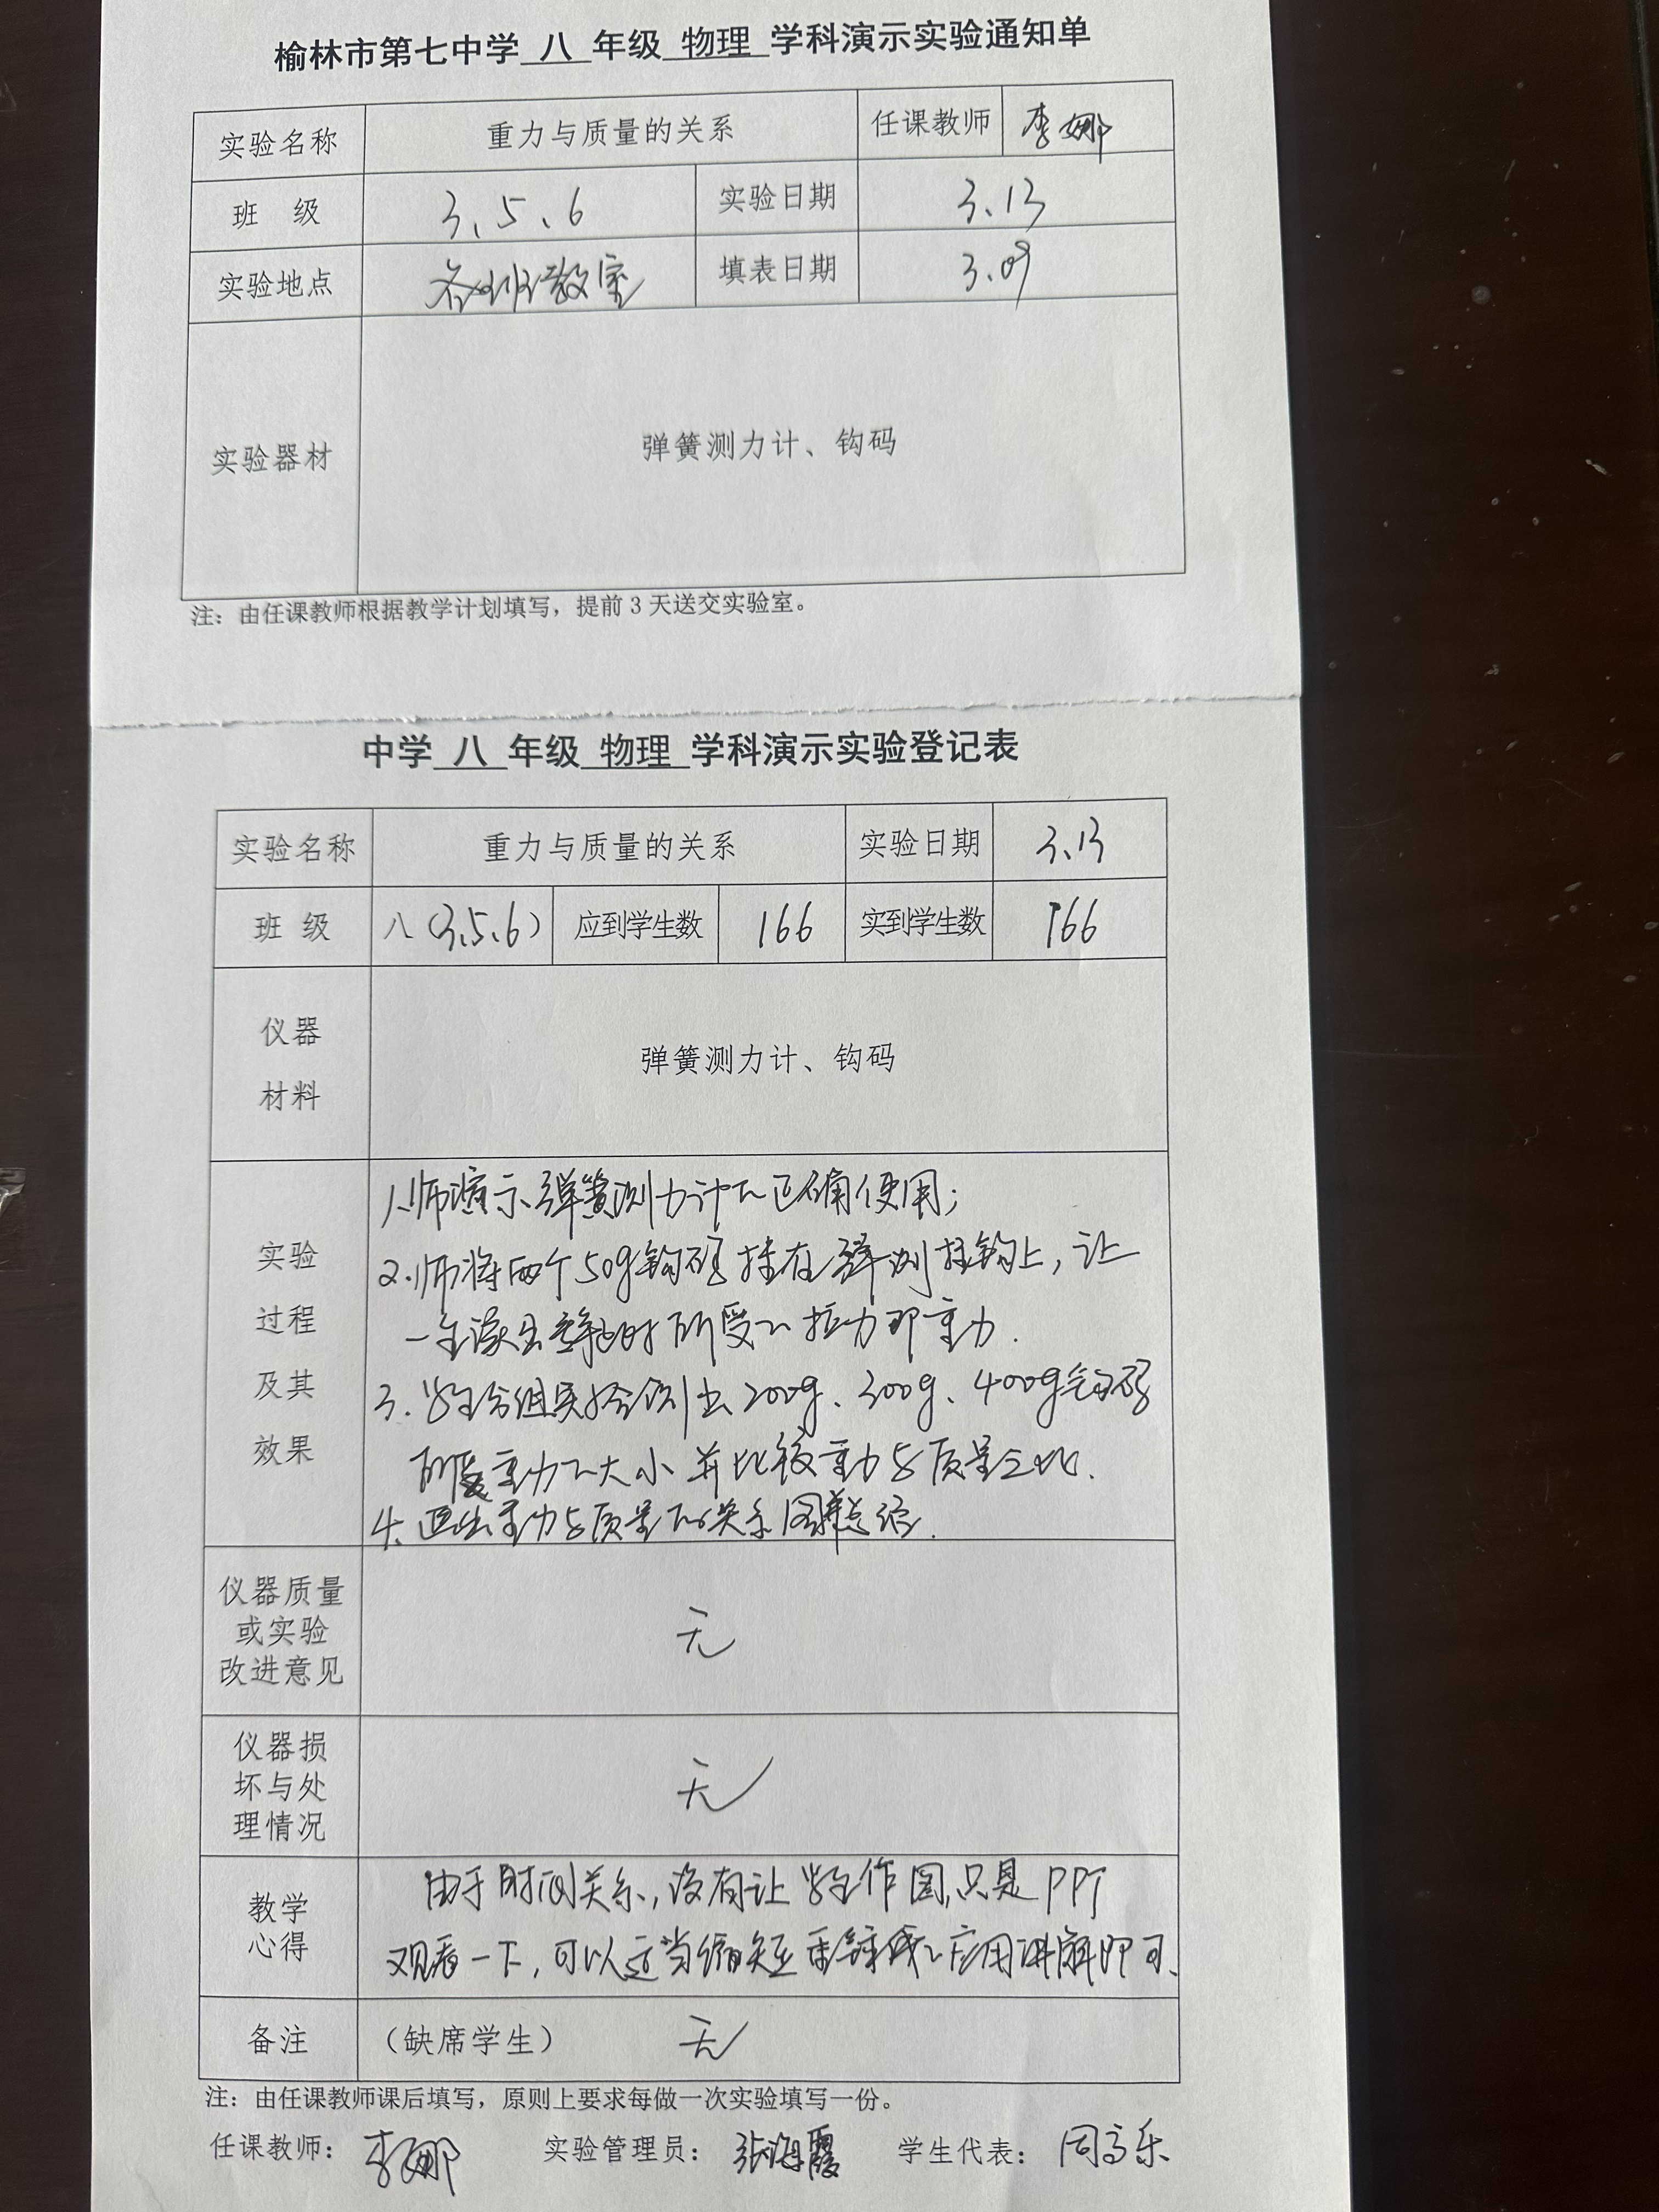 榆林市第七中学 八 年级 物理 学科演示实验通知单
实验名称 重力与质量的关系 任课教师 李娜
班 级 3、5、6 实验日期 3.13
实验地点 各班教室 填表日期 3.09
实验器材 弹簧测力计、钩码
注：由任课教师根据教学计划填写，提前 3 天送交实验室。
中学 八 年级 物理 学科演示实验登记表
实验名称 重力与质量的关系 实验日期 3.13
班 级 八(3、5、6) 应到学生数 166 实到学生数 166
仪器
材料
弹簧测力计、钩码
实验
过程
及其
效果
1.师演示弹簧测力计的正确使用；
2.师将两个50g钩码挂在弹测挂钩上，让
一生读出静止时所受的拉力即重力.
3.学生分组实验测出200g、300g、400g钩码
所受重力的大小并比较重力与质量之比.
4.画出重力与质量的关系图 总结.
仪器质量
或实验
改进意见
无
仪器损
坏与处
理情况
无
教学
心得
由于时间关系，没有让学生作图，只是PPT
观看一下，可以适当缩短重垂线的应用讲解即可.
备注 （缺席学生） 无
注：由任课教师课后填写，原则上要求每做一次实验填写一份。
任课教师： 李娜 实验管理员： 张海霞 学生代表： 乐